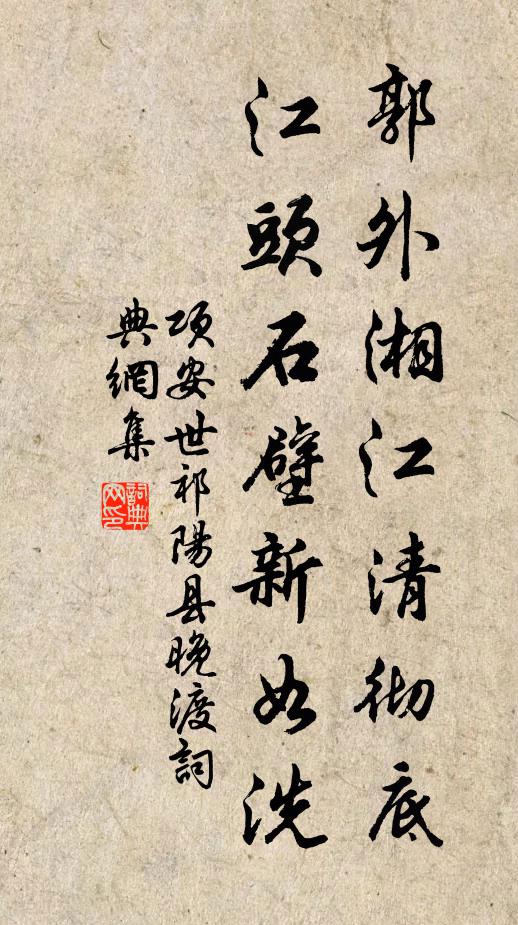 郭外湘江清彻底
江頭石壁新如洗
项安世祁陽县晚渡詞
典網集
詞典
网印